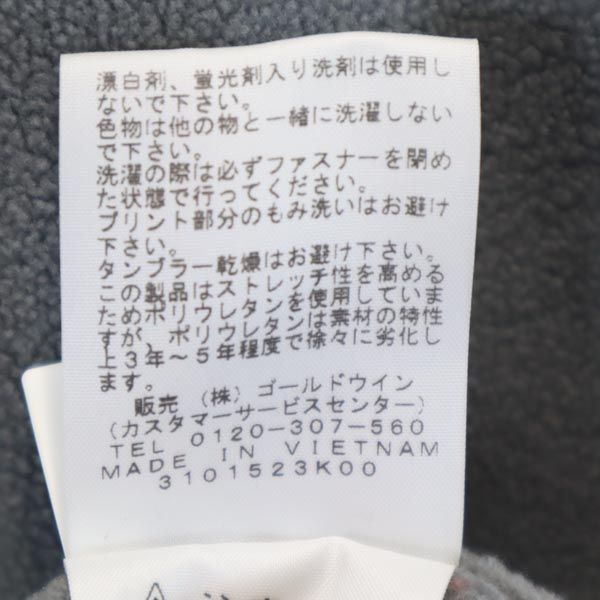 漂白剤、蛍光剤入り洗剤は使用し
ないで下さい。
色物は他の物と一緒に洗濯しない
で下さい。
洗濯の際は必ずファスナーを閉め
た状態で行ってください。
プリント部分のもみ洗いはお避け
下さい。
タンブラー乾燥はお避け下さい。
この製品はストレッチ性を高める
ためポリウレタンを使用していま
すが、ポリウレタンは素材の特性
上3年～5年程度で徐々に劣化し
ます。
販売 (株) ゴールドウイン
(カスタマーサービスセンター)
TEL 0120-307-560
MADE IN VIETNAM
3101523K00